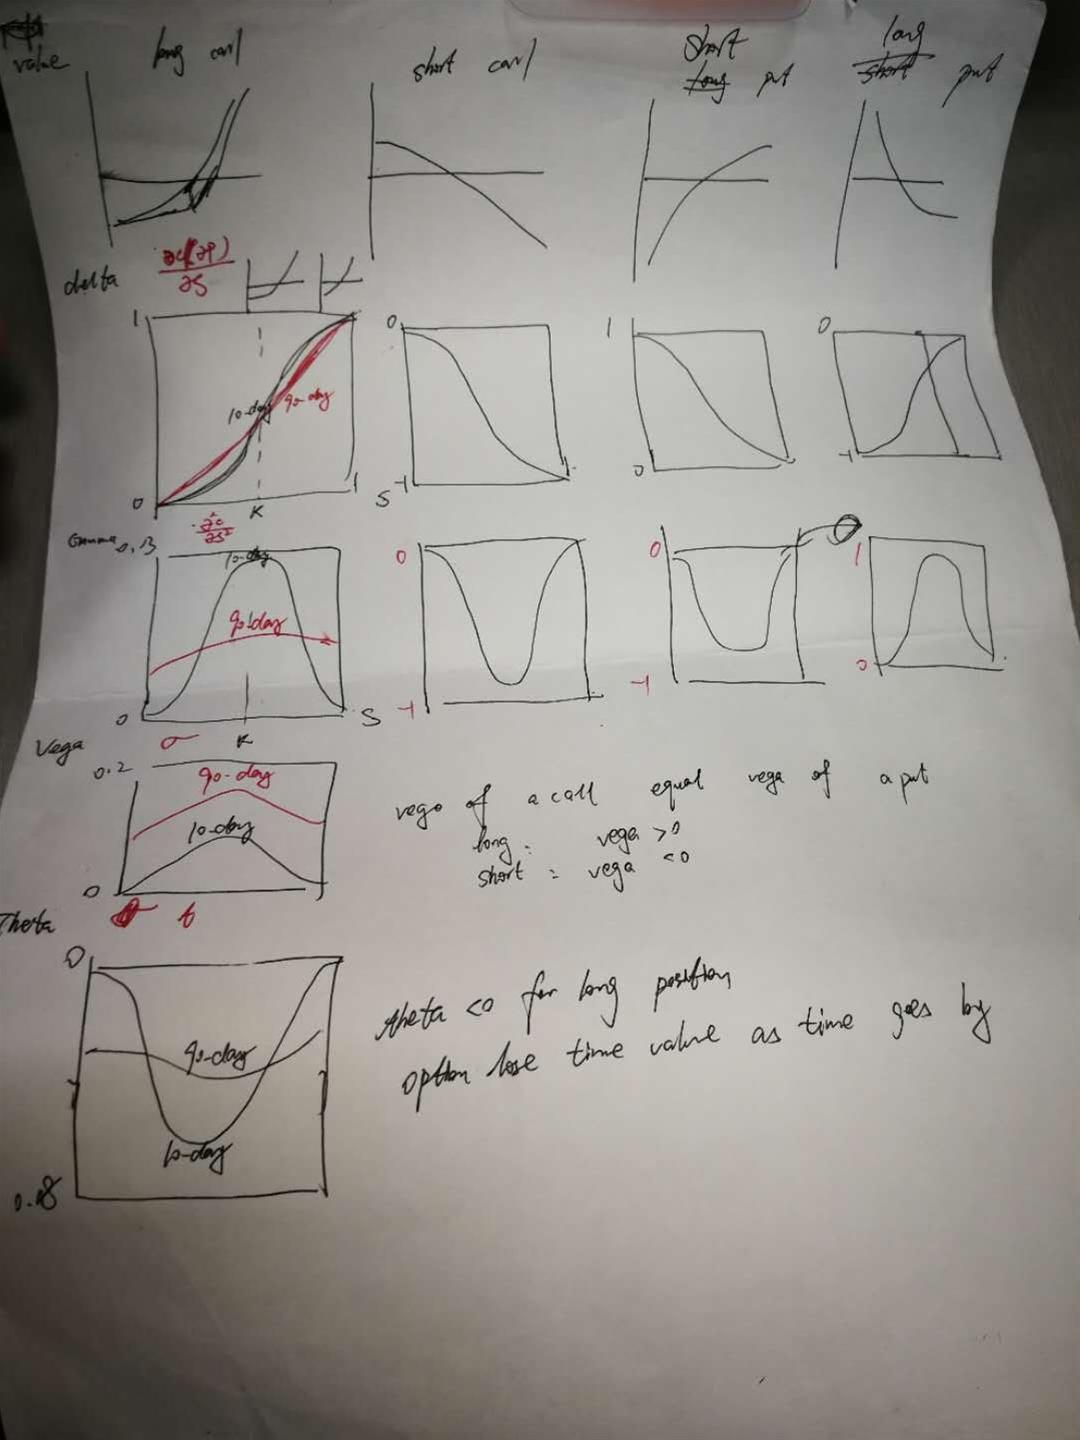 value
long call
short call
short
long put
long
short put
delta
∂c(∂p)
∂S
1
0
10-day
90-day
K
1
0
S -1
1
0
0
-1
Gamma
∂²c
∂S²
0.13
10-day
90-day
0
K
S
0
-1
0
-1
1
0
Vega
σ
0.2
90-day
10-day
0
vega of a call equal vega of a put
long : vega >0
short : vega <0
Theta
t
0
90-day
10-day
theta <0 for long position
option lose time value as time goes by